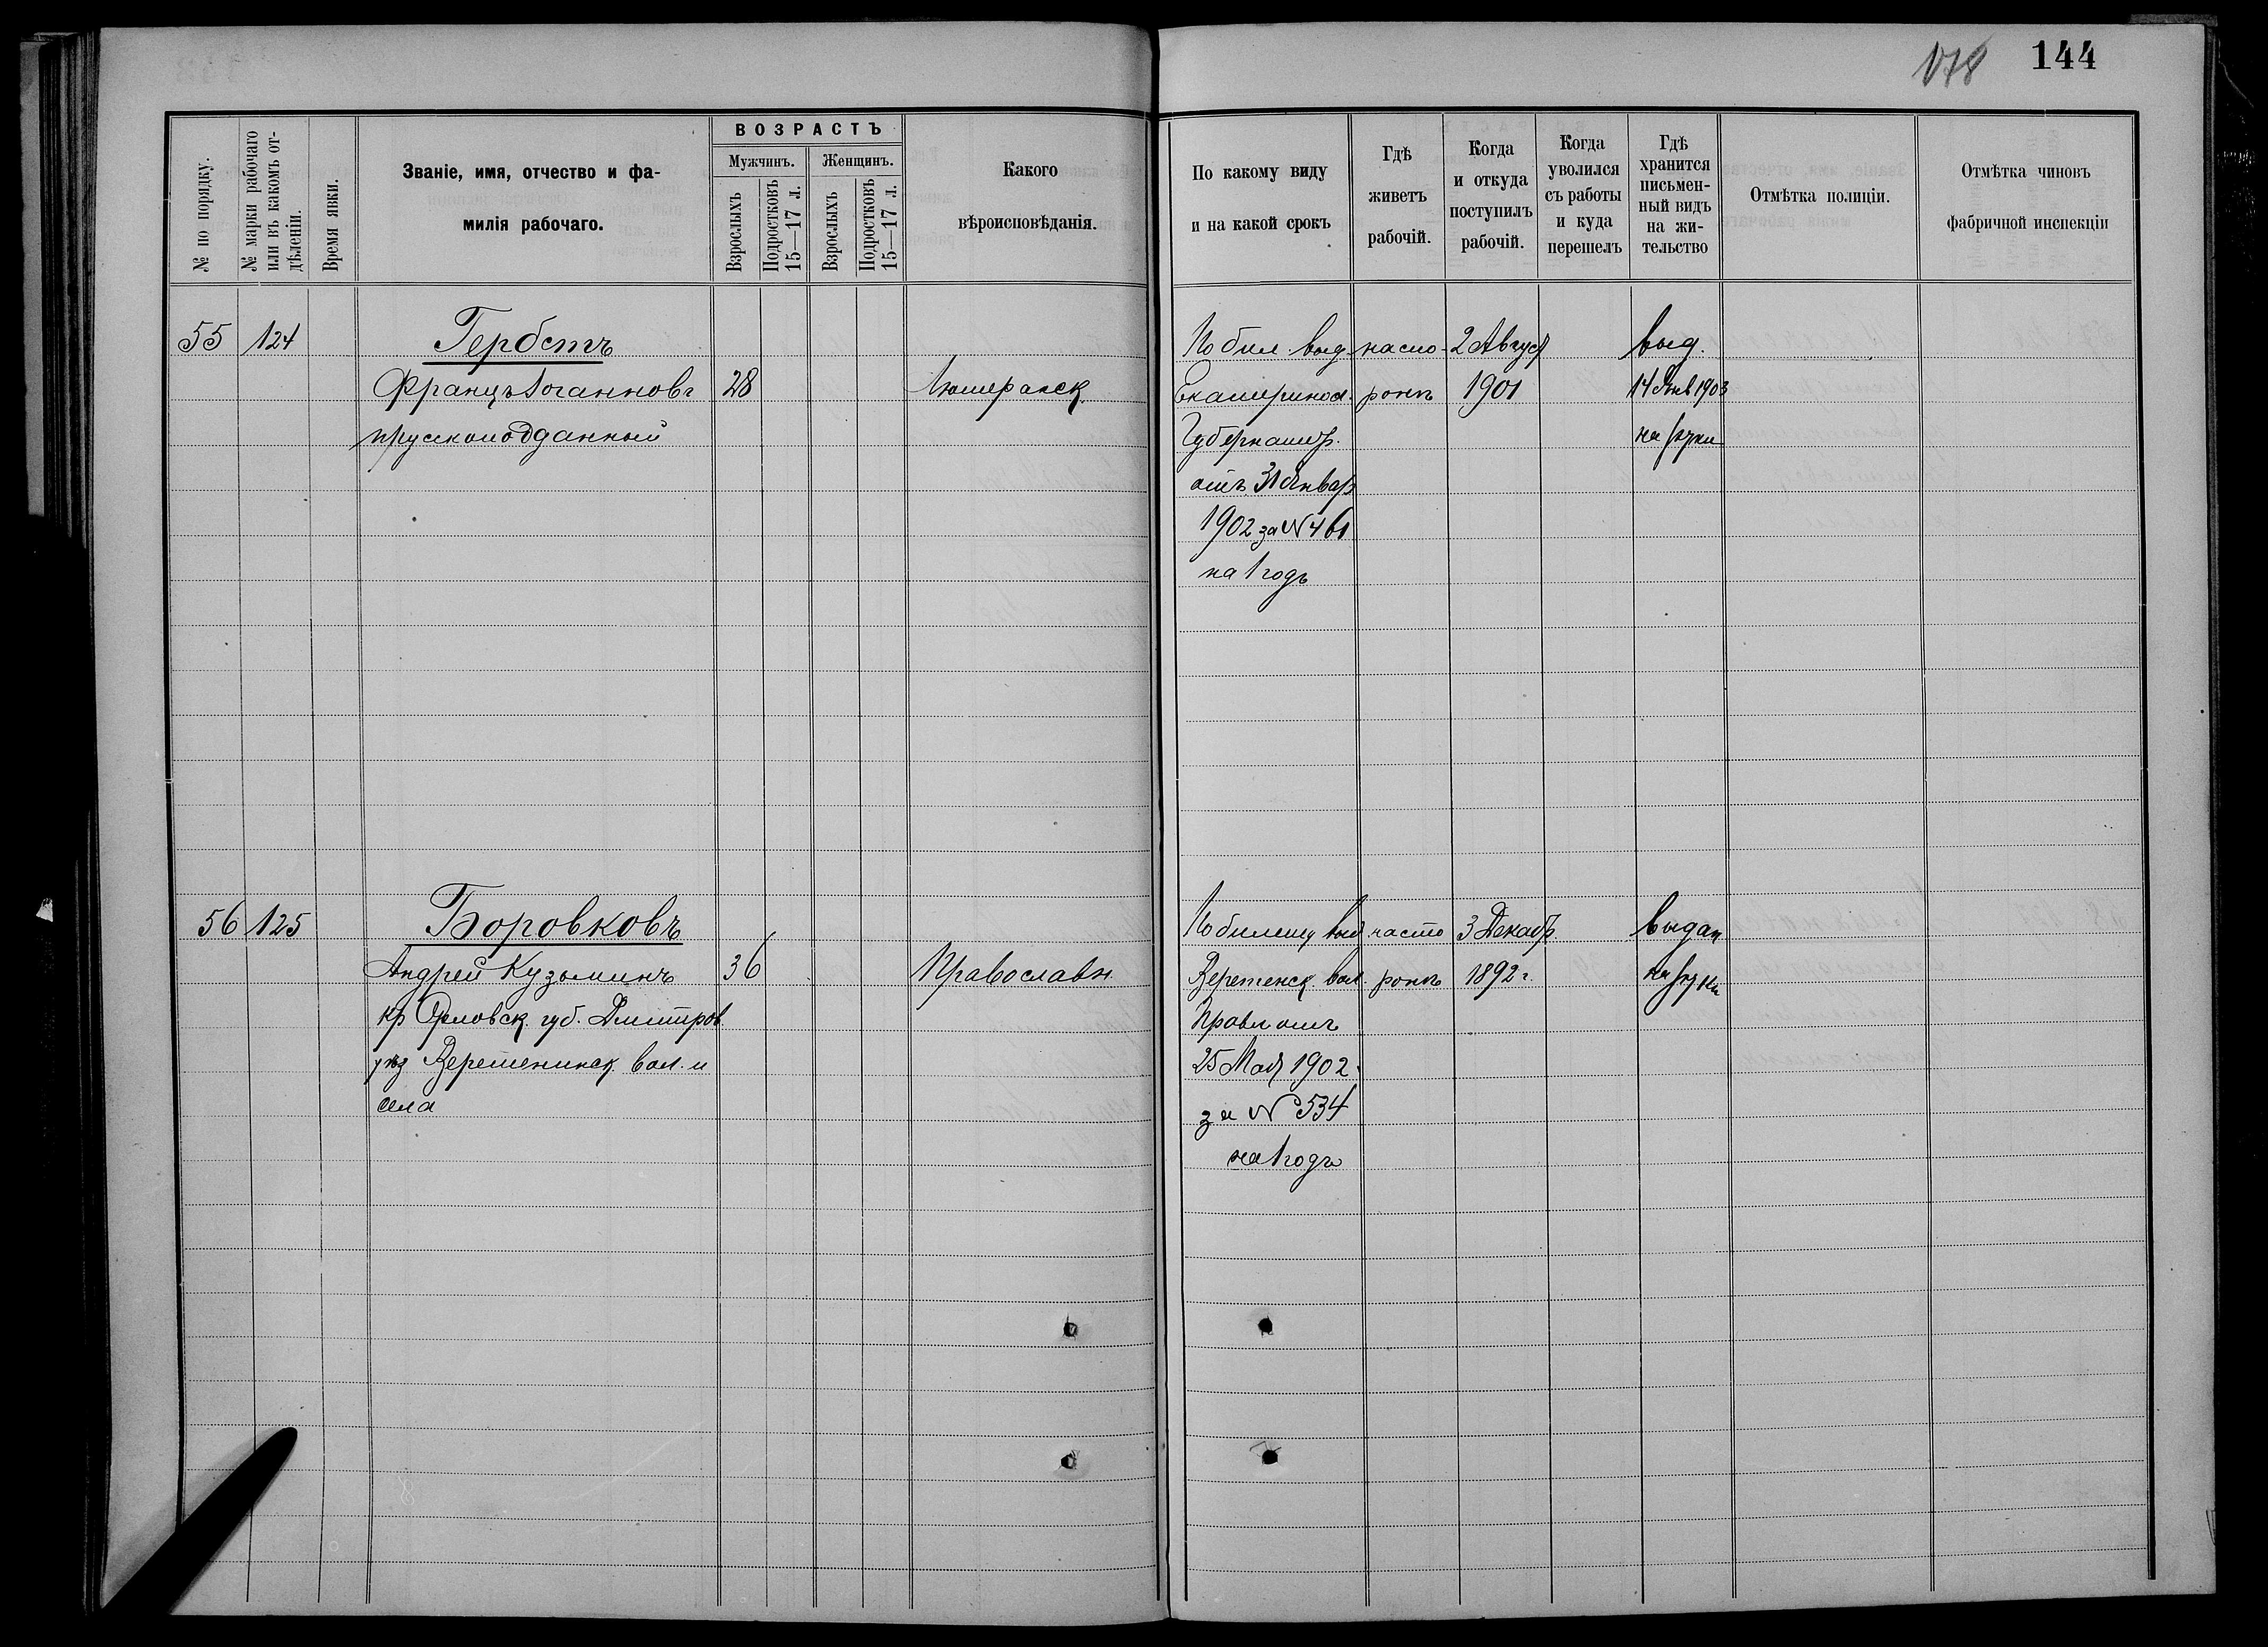 178 144
№ по порядку.
№ марки рабочаго или въ какомъ отдѣленіи.
Время явки.
Званіе, имя, отчество и фа-
милія рабочаго.
ВОЗРАСТЪ
Мужчинъ. Женщинъ.
Взрослыхъ
Подростковъ 15—17 л.
Взрослыхъ
Подростковъ 15—17 л.
Какого
вѣроисповѣданія.
По какому виду
и на какой срокъ
Гдѣ
живетъ
рабочій.
Когда
и откуда
поступилъ
рабочій.
Когда
уволился
съ работы
и куда
перешелъ
Гдѣ
хранится
письмен-
ный видъ
на жи-
тельство
Отмѣтка полиціи.
Отмѣтка чиновъ
фабричной инспекціи
55 124 Гербстъ
Францъ Іоганновъ 28 Лютеранск.
прускоподданный
По бил. выд.
Екатериносл.
Губернатор.
отъ 31 Январ
1902 за № 461
на 1 годъ
насто-
ронѣ
2 Август
1901
выд.
14 Янв 1903
на руки
56 125 Боровковъ
Андрей Кузьминъ 36 Православн.
кр Орловск. губ. Дмитров.
уѣз Веретенинск. вол. и
села
По билету выд
Веретенск. вол.
Правл отъ
25 Мая 1902.
за № 534
на 1 годъ
насто
ронѣ
3 Декабр.
1892 г.
выдан
на руки